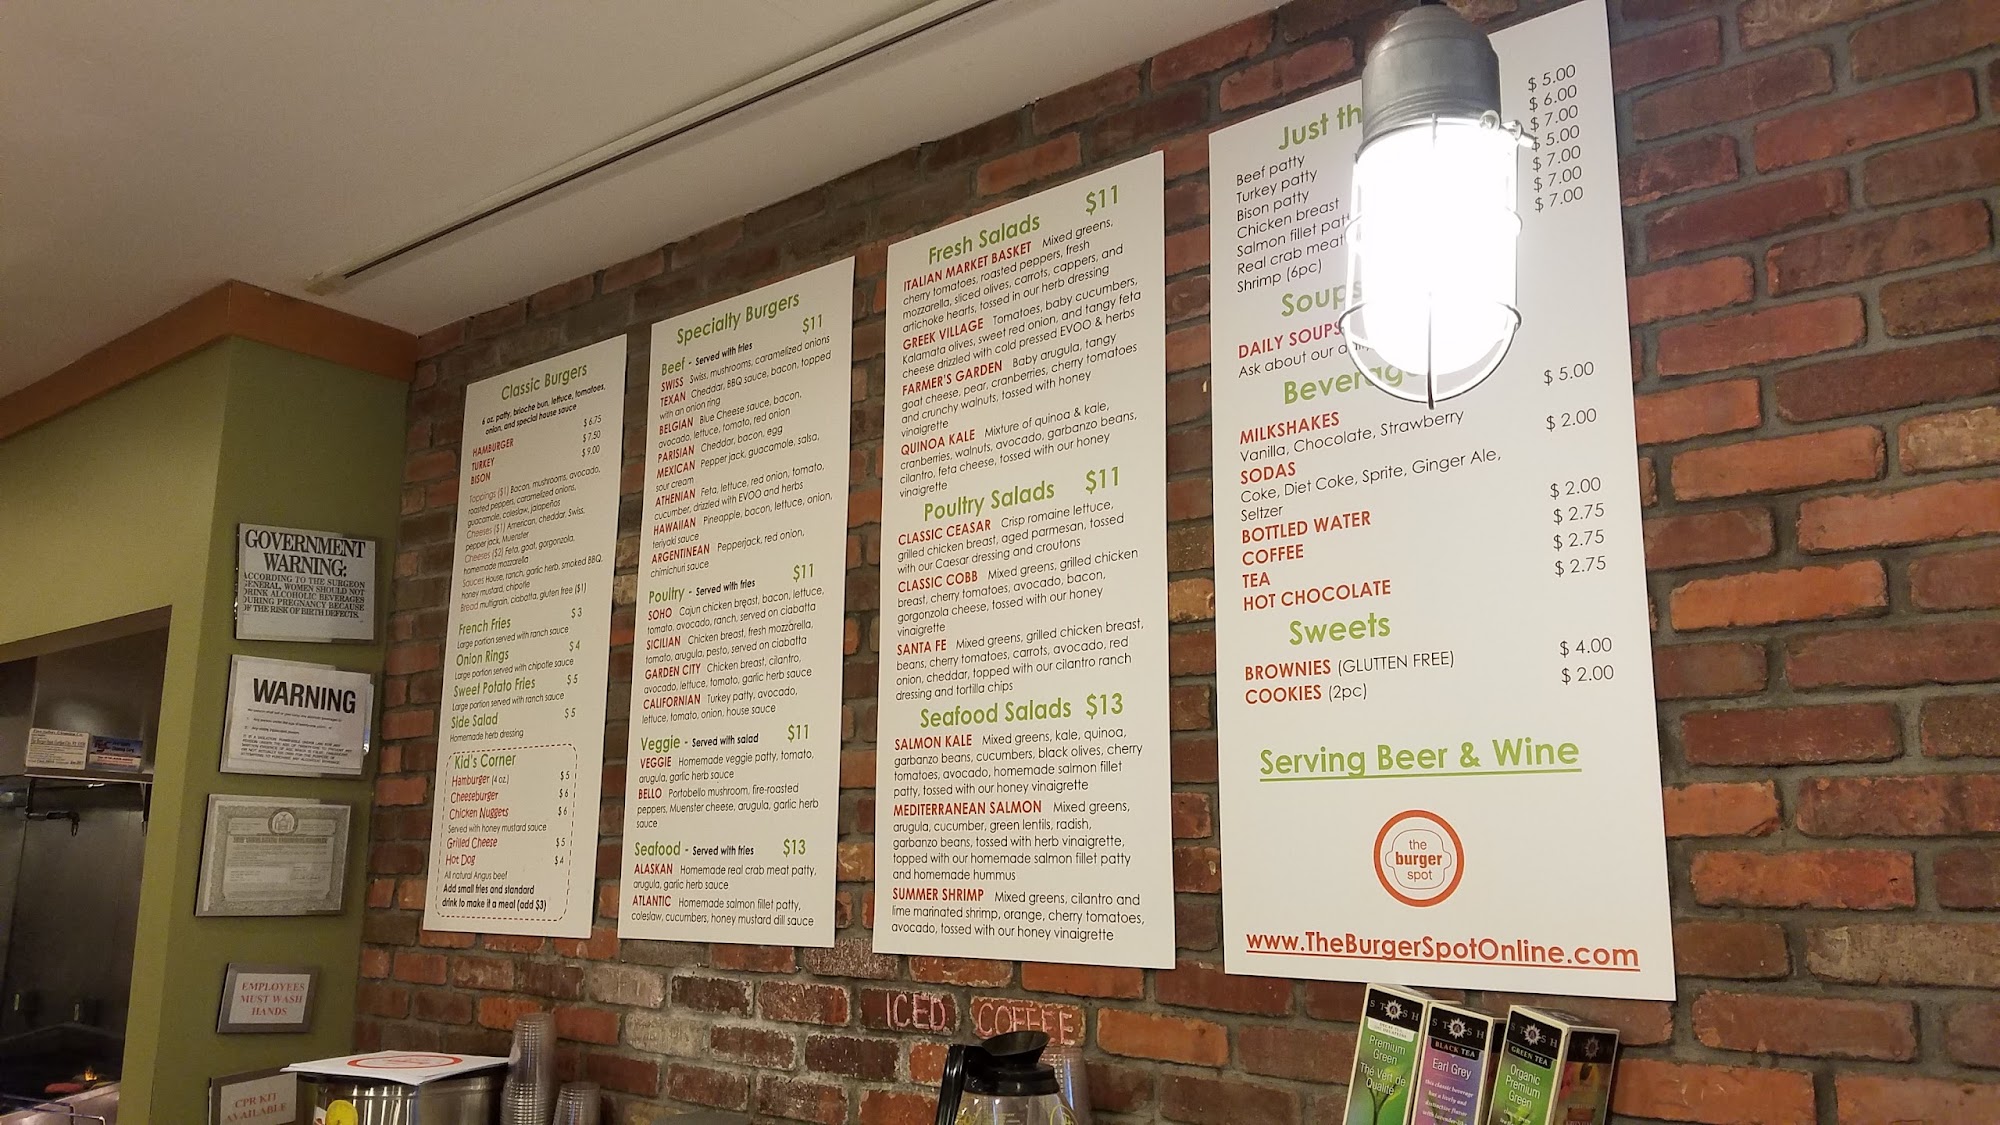 Classic Burgers
6 oz. patty, brioche bun, lettuce, tomatoes,
onion, and special house sauce
HAMBURGER $ 6.75
TURKEY $ 7.50
BISON $ 9.00
Toppings ($1) Bacon, mushrooms, avocado,
roasted peppers, caramelized onions,
guacamole, coleslaw, jalapeños
Cheeses ($1) American, cheddar, Swiss,
pepper jack, Muenster
Cheeses ($2) Feta, goat, gorgonzola,
homemade mozzarella
Sauces House, ranch, garlic herb, smoked BBQ,
honey mustard, chipotle
Bread multigrain, ciabatta, gluten free ($1)
French Fries $ 3
Large portion served with ranch sauce
Onion Rings $ 4
Large portion served with chipotle sauce
Sweet Potato Fries $ 5
Large portion served with ranch sauce
Side Salad $ 5
Homemade herb dressing
Kid's Corner
Hamburger (4 oz.) $ 5
Cheeseburger $ 6
Chicken Nuggets $ 6
Served with honey mustard sauce
Grilled Cheese $ 5
Hot Dog $ 4
All natural Angus beef
Add small fries and standard
drink to make it a meal (add $3)
Specialty Burgers
Beef - Served with fries $11
SWISS Swiss, mushrooms, caramelized onions
TEXAN Cheddar, BBQ sauce, bacon, topped
with an onion ring
BELGIAN Blue Cheese sauce, bacon,
avocado, lettuce, tomato, red onion
PARISIAN Cheddar, bacon, egg
MEXICAN Pepper jack, guacamole, salsa,
sour cream
ATHENIAN Feta, lettuce, red onion, tomato,
cucumber, drizzled with EVOO and herbs
HAWAIIAN Pineapple, bacon, lettuce, onion,
teriyaki sauce
ARGENTINEAN Pepperjack, red onion,
chimichuri sauce
Poultry - Served with fries $11
SOHO Cajun chicken breast, bacon, lettuce,
tomato, avocado, ranch, served on ciabatta
SICILIAN Chicken breast, fresh mozzarella,
tomato, arugula, pesto, served on ciabatta
GARDEN CITY Chicken breast, cilantro,
avocado, lettuce, tomato, garlic herb sauce
CALIFORNIAN Turkey patty, avocado,
lettuce, tomato, onion, house sauce
Veggie - Served with salad $11
VEGGIE Homemade veggie patty, tomato,
arugula, garlic herb sauce
BELLO Portobello mushroom, fire-roasted
peppers, Muenster cheese, arugula, garlic herb
sauce
Seafood - Served with fries $13
ALASKAN Homemade real crab meat patty,
arugula, garlic herb sauce
ATLANTIC Homemade salmon fillet patty,
coleslaw, cucumbers, honey mustard dill sauce
Fresh Salads $11
ITALIAN MARKET BASKET Mixed greens,
cherry tomatoes, roasted peppers, fresh
mozzarella, sliced olives, carrots, cappers, and
artichoke hearts, tossed in our herb dressing
GREEK VILLAGE Tomatoes, baby cucumbers,
Kalamata olives, sweet red onion, and tangy feta
cheese drizzled with cold pressed EVOO & herbs
FARMER'S GARDEN Baby arugula, tangy
goat cheese, pear, cranberries, cherry tomatoes
and crunchy walnuts, tossed with honey
vinaigrette
QUINOA KALE Mixture of quinoa & kale,
cranberries, walnuts, avocado, garbanzo beans,
cilantro, feta cheese, tossed with our honey
vinaigrette
Poultry Salads $11
CLASSIC CEASAR Crisp romaine lettuce,
grilled chicken breast, aged parmesan, tossed
with our Caesar dressing and croutons
CLASSIC COBB Mixed greens, grilled chicken
breast, cherry tomatoes, avocado, bacon,
gorgonzola cheese, tossed with our honey
vinaigrette
SANTA FE Mixed greens, grilled chicken breast,
beans, cherry tomatoes, carrots, avocado, red
onion, cheddar, topped with our cilantro ranch
dressing and tortilla chips
Seafood Salads $13
SALMON KALE Mixed greens, kale, quinoa,
garbanzo beans, cucumbers, black olives, cherry
tomatoes, avocado, homemade salmon fillet
patty, tossed with our honey vinaigrette
MEDITERRANEAN SALMON Mixed greens,
arugula, cucumber, green lentils, radish,
garbanzo beans, tossed with herb vinaigrette,
topped with our homemade salmon fillet patty
and homemade hummus
SUMMER SHRIMP Mixed greens, cilantro and
lime marinated shrimp, orange, cherry tomatoes,
avocado, tossed with our honey vinaigrette
Just th
Beef patty $ 5.00
Turkey patty $ 6.00
Bison patty $ 7.00
Chicken breast $ 5.00
Salmon fillet pat $ 7.00
Real crab meat $ 7.00
Shrimp (6pc) $ 7.00
Soups
DAILY SOUPS
Ask about our
Beverag
MILKSHAKES $ 5.00
Vanilla, Chocolate, Strawberry
SODAS $ 2.00
Coke, Diet Coke, Sprite, Ginger Ale,
Seltzer
BOTTLED WATER $ 2.00
COFFEE $ 2.75
TEA $ 2.75
HOT CHOCOLATE $ 2.75
Sweets
BROWNIES (GLUTTEN FREE) $ 4.00
COOKIES (2pc) $ 2.00
Serving Beer & Wine
the
burger
spot
www.TheBurgerSpotOnline.com
GOVERNMENT
WARNING:
ACCORDING TO THE SURGEON
GENERAL, WOMEN SHOULD NOT
DRINK ALCOHOLIC BEVERAGES
DURING PREGNANCY BECAUSE
OF THE RISK OF BIRTH DEFECTS.
WARNING
EMPLOYEES
MUST WASH
HANDS
CPR KIT
AVAILABLE
ICED COFFEE
STASH
Premium
Green
Thé Vert de
Qualité
STASH
BLACK TEA
Earl Grey
STASH
GREEN TEA
Organic
Premium
Green